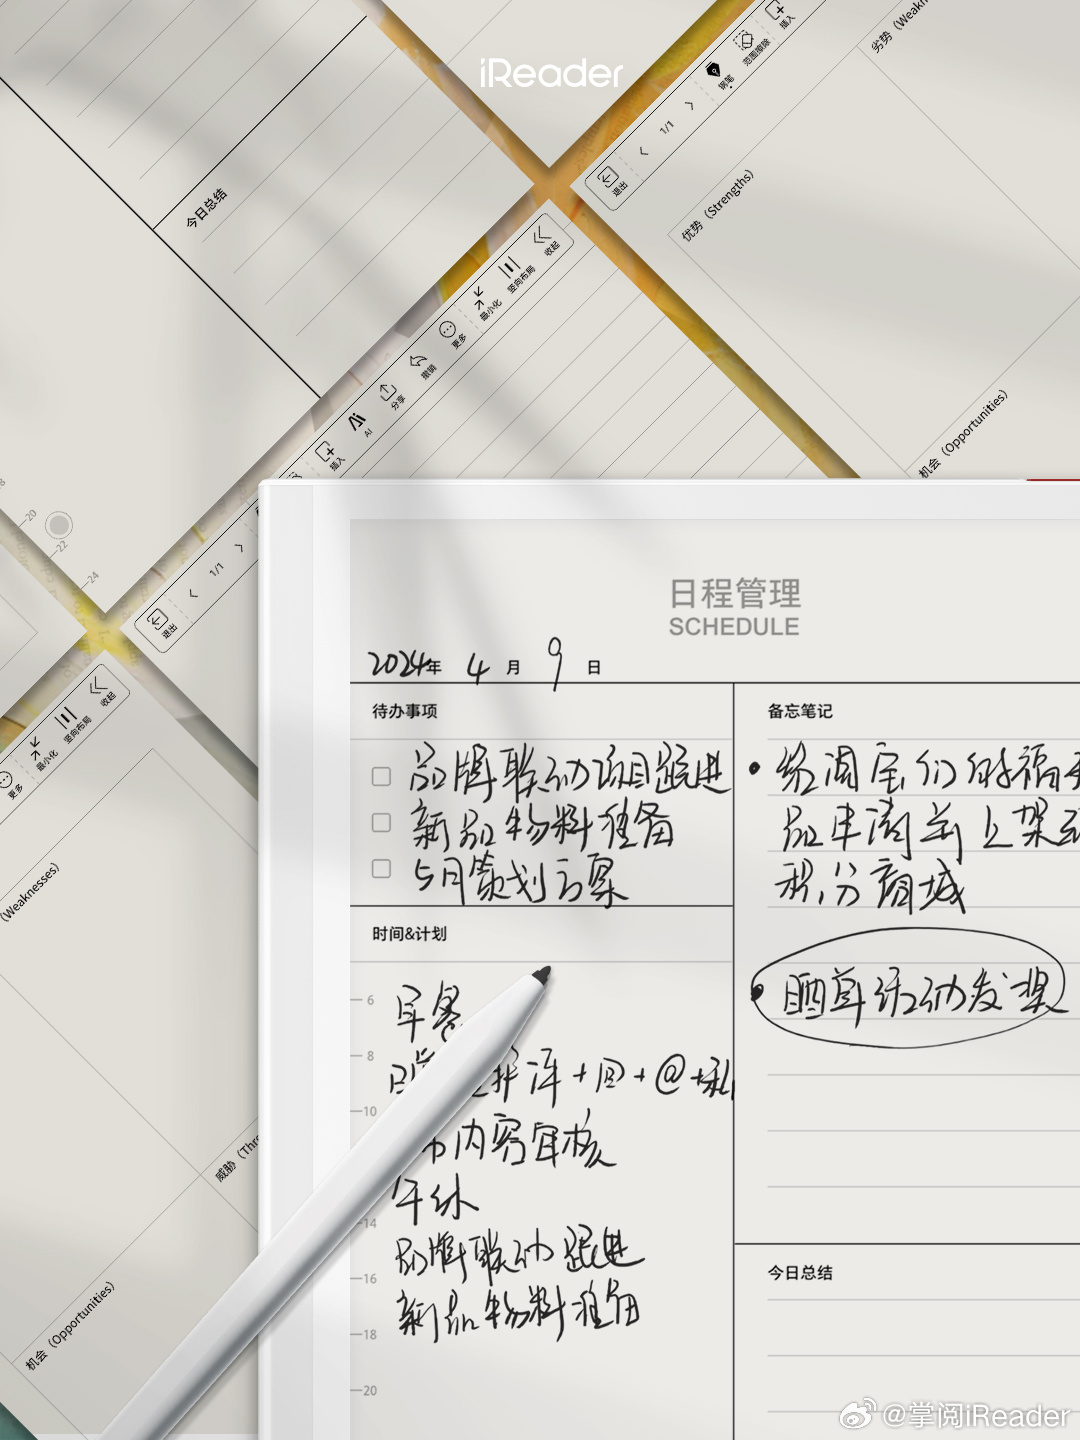 iReader
今日总结
劣势（Weakn
插入
范围擦除
钢笔
1/1
退出
优势（Strengths）
机会（Opportunities）
收起
竖向布局
最小化
更多
撤销
分享
AI
插入
1/1
退出
20
22
24
收起
竖向布局
最小化
更多
（Weaknesses）
威胁（Thr
机会（Opportunities）
日程管理
SCHEDULE
2024年 4月 9日
待办事项
品牌联动项目跟进
新品物料准备
5月策划方案
时间&计划
6
早餐
8
评+回+@+私
10
内容审核
午休
14
品牌联动跟进
16
新品物料准备
18
20
备忘笔记
给阅宝们的福
品申请前上架
积分商城
晒单活动发奖
今日总结
@掌阅iReader